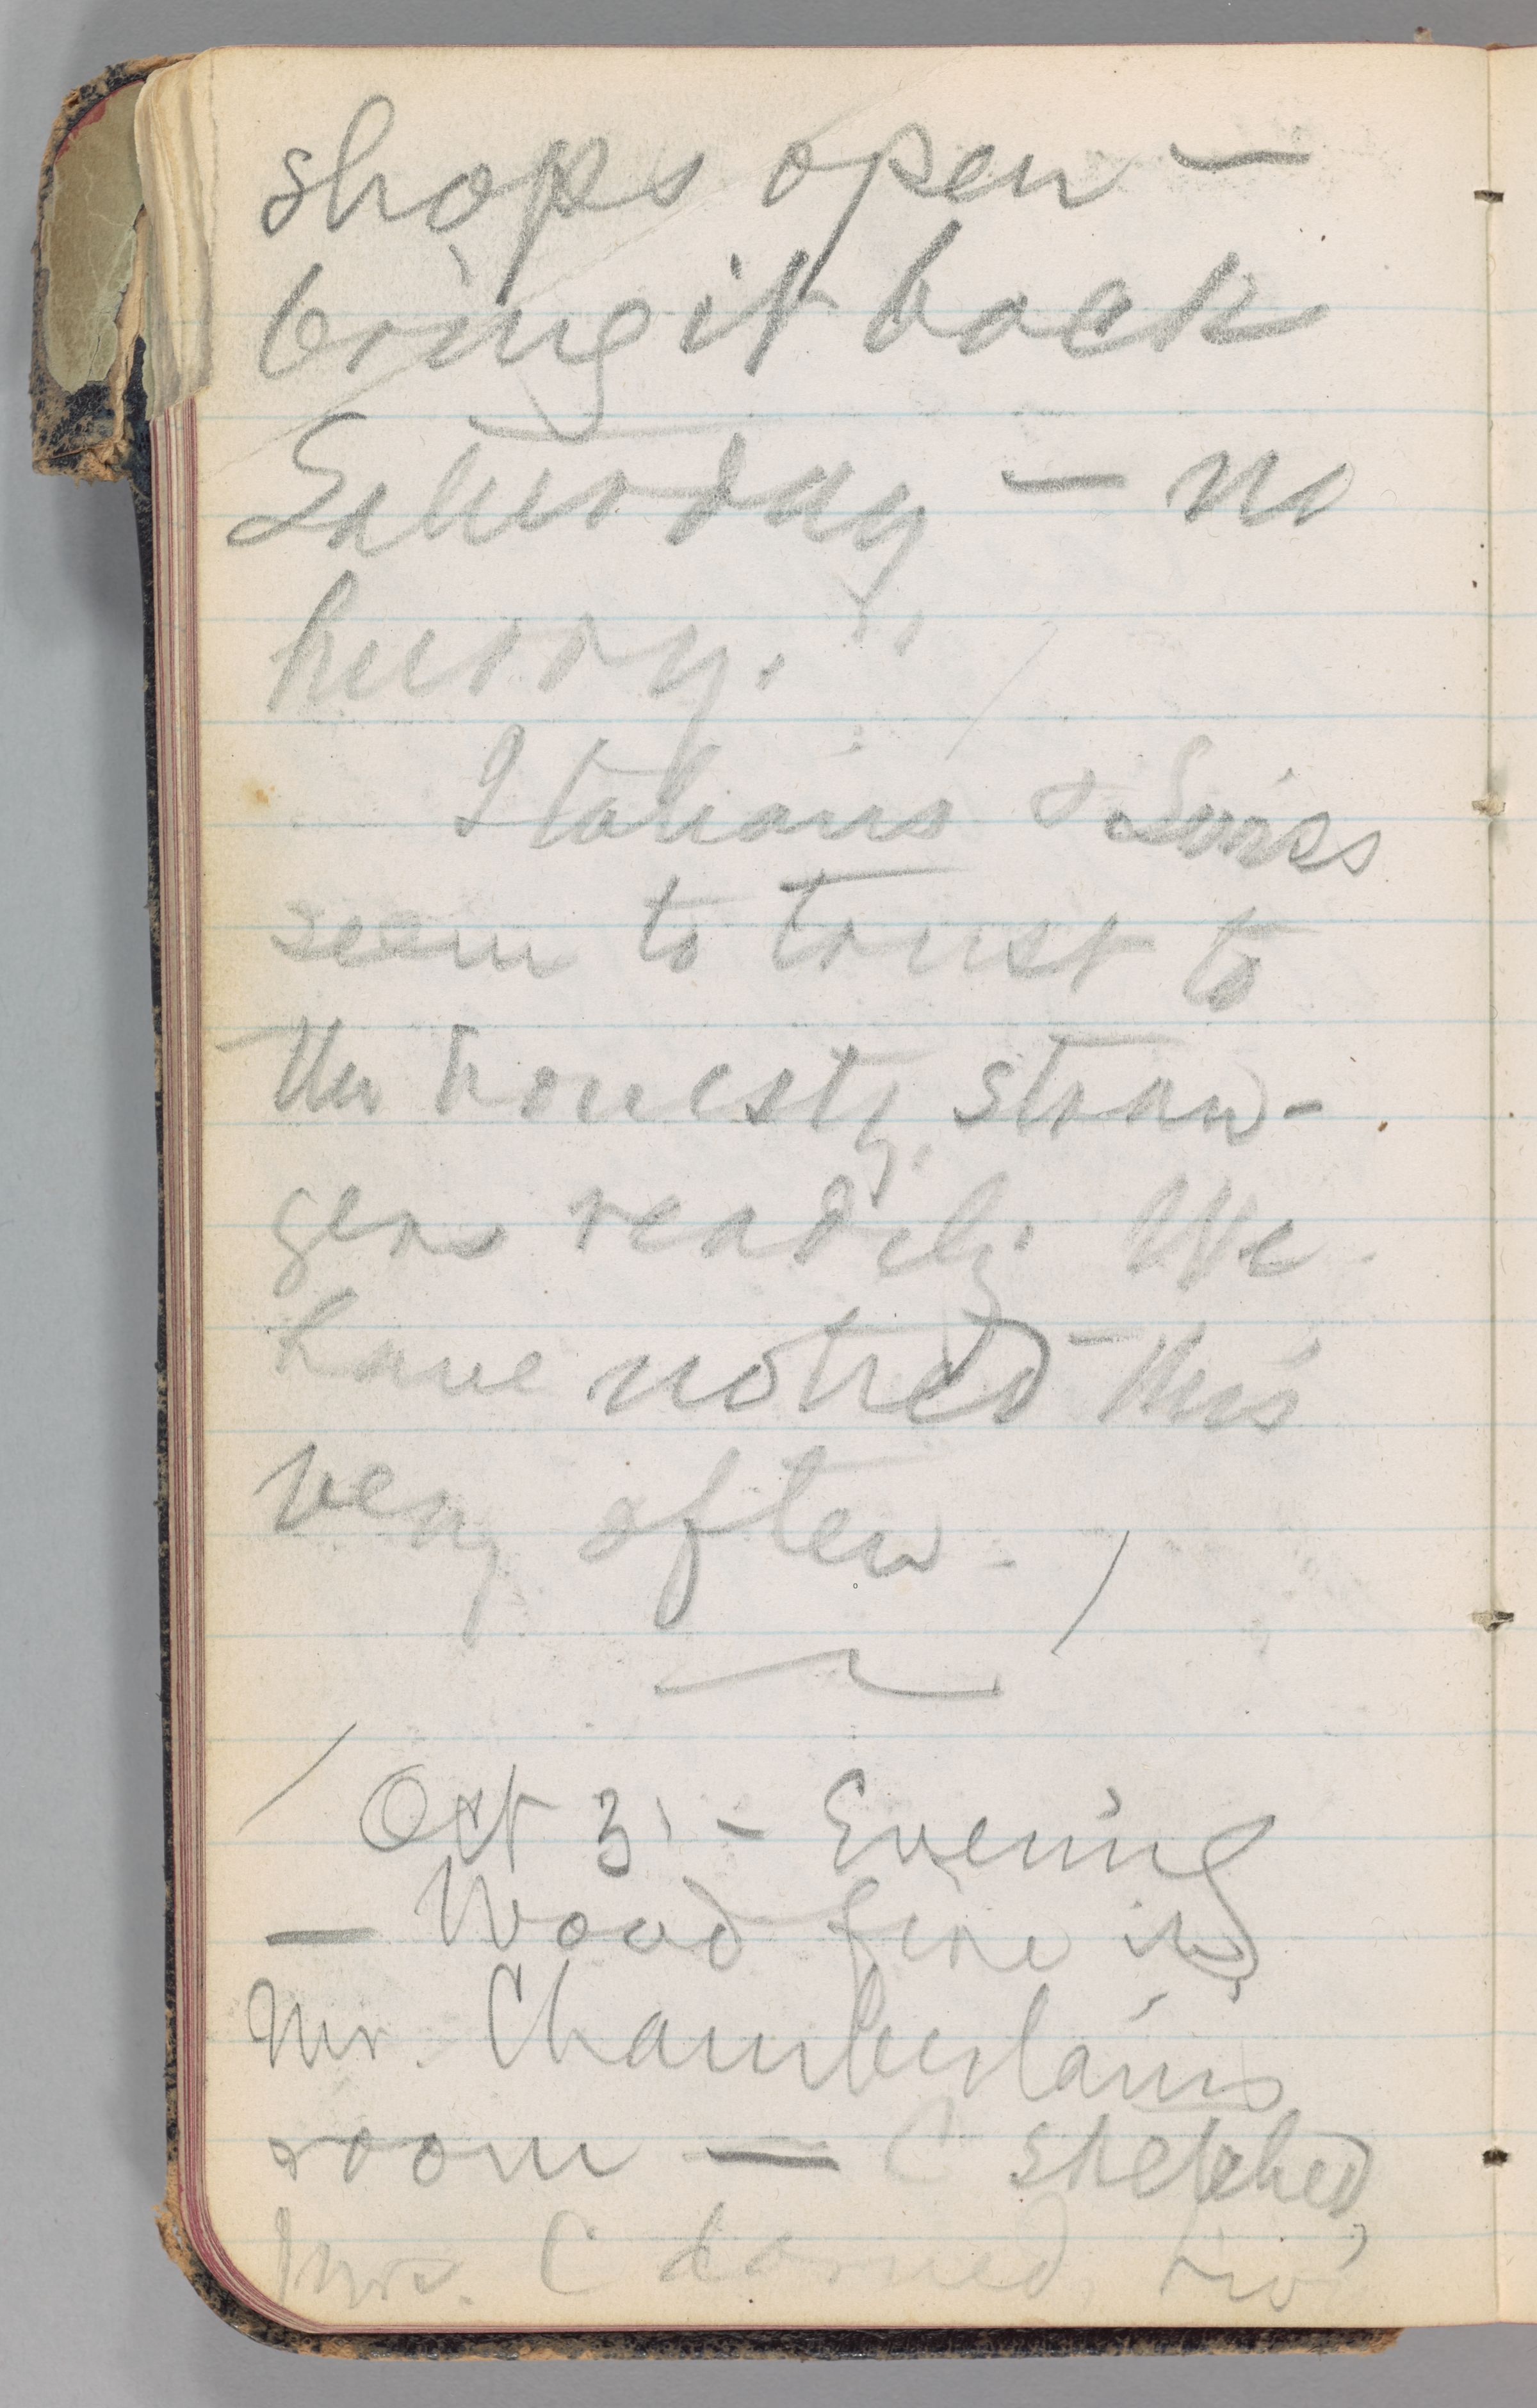 shops open —
bring it back
Saturday — no
hurry."
Italians & Swiss
seem to trust to
the honesty stran-
gers readily. We
have noticed this
very often.
Oct 3 - Evening
— Wood fire in
Mr. Chamberlains
room — C sketched,
Mrs. C darned,